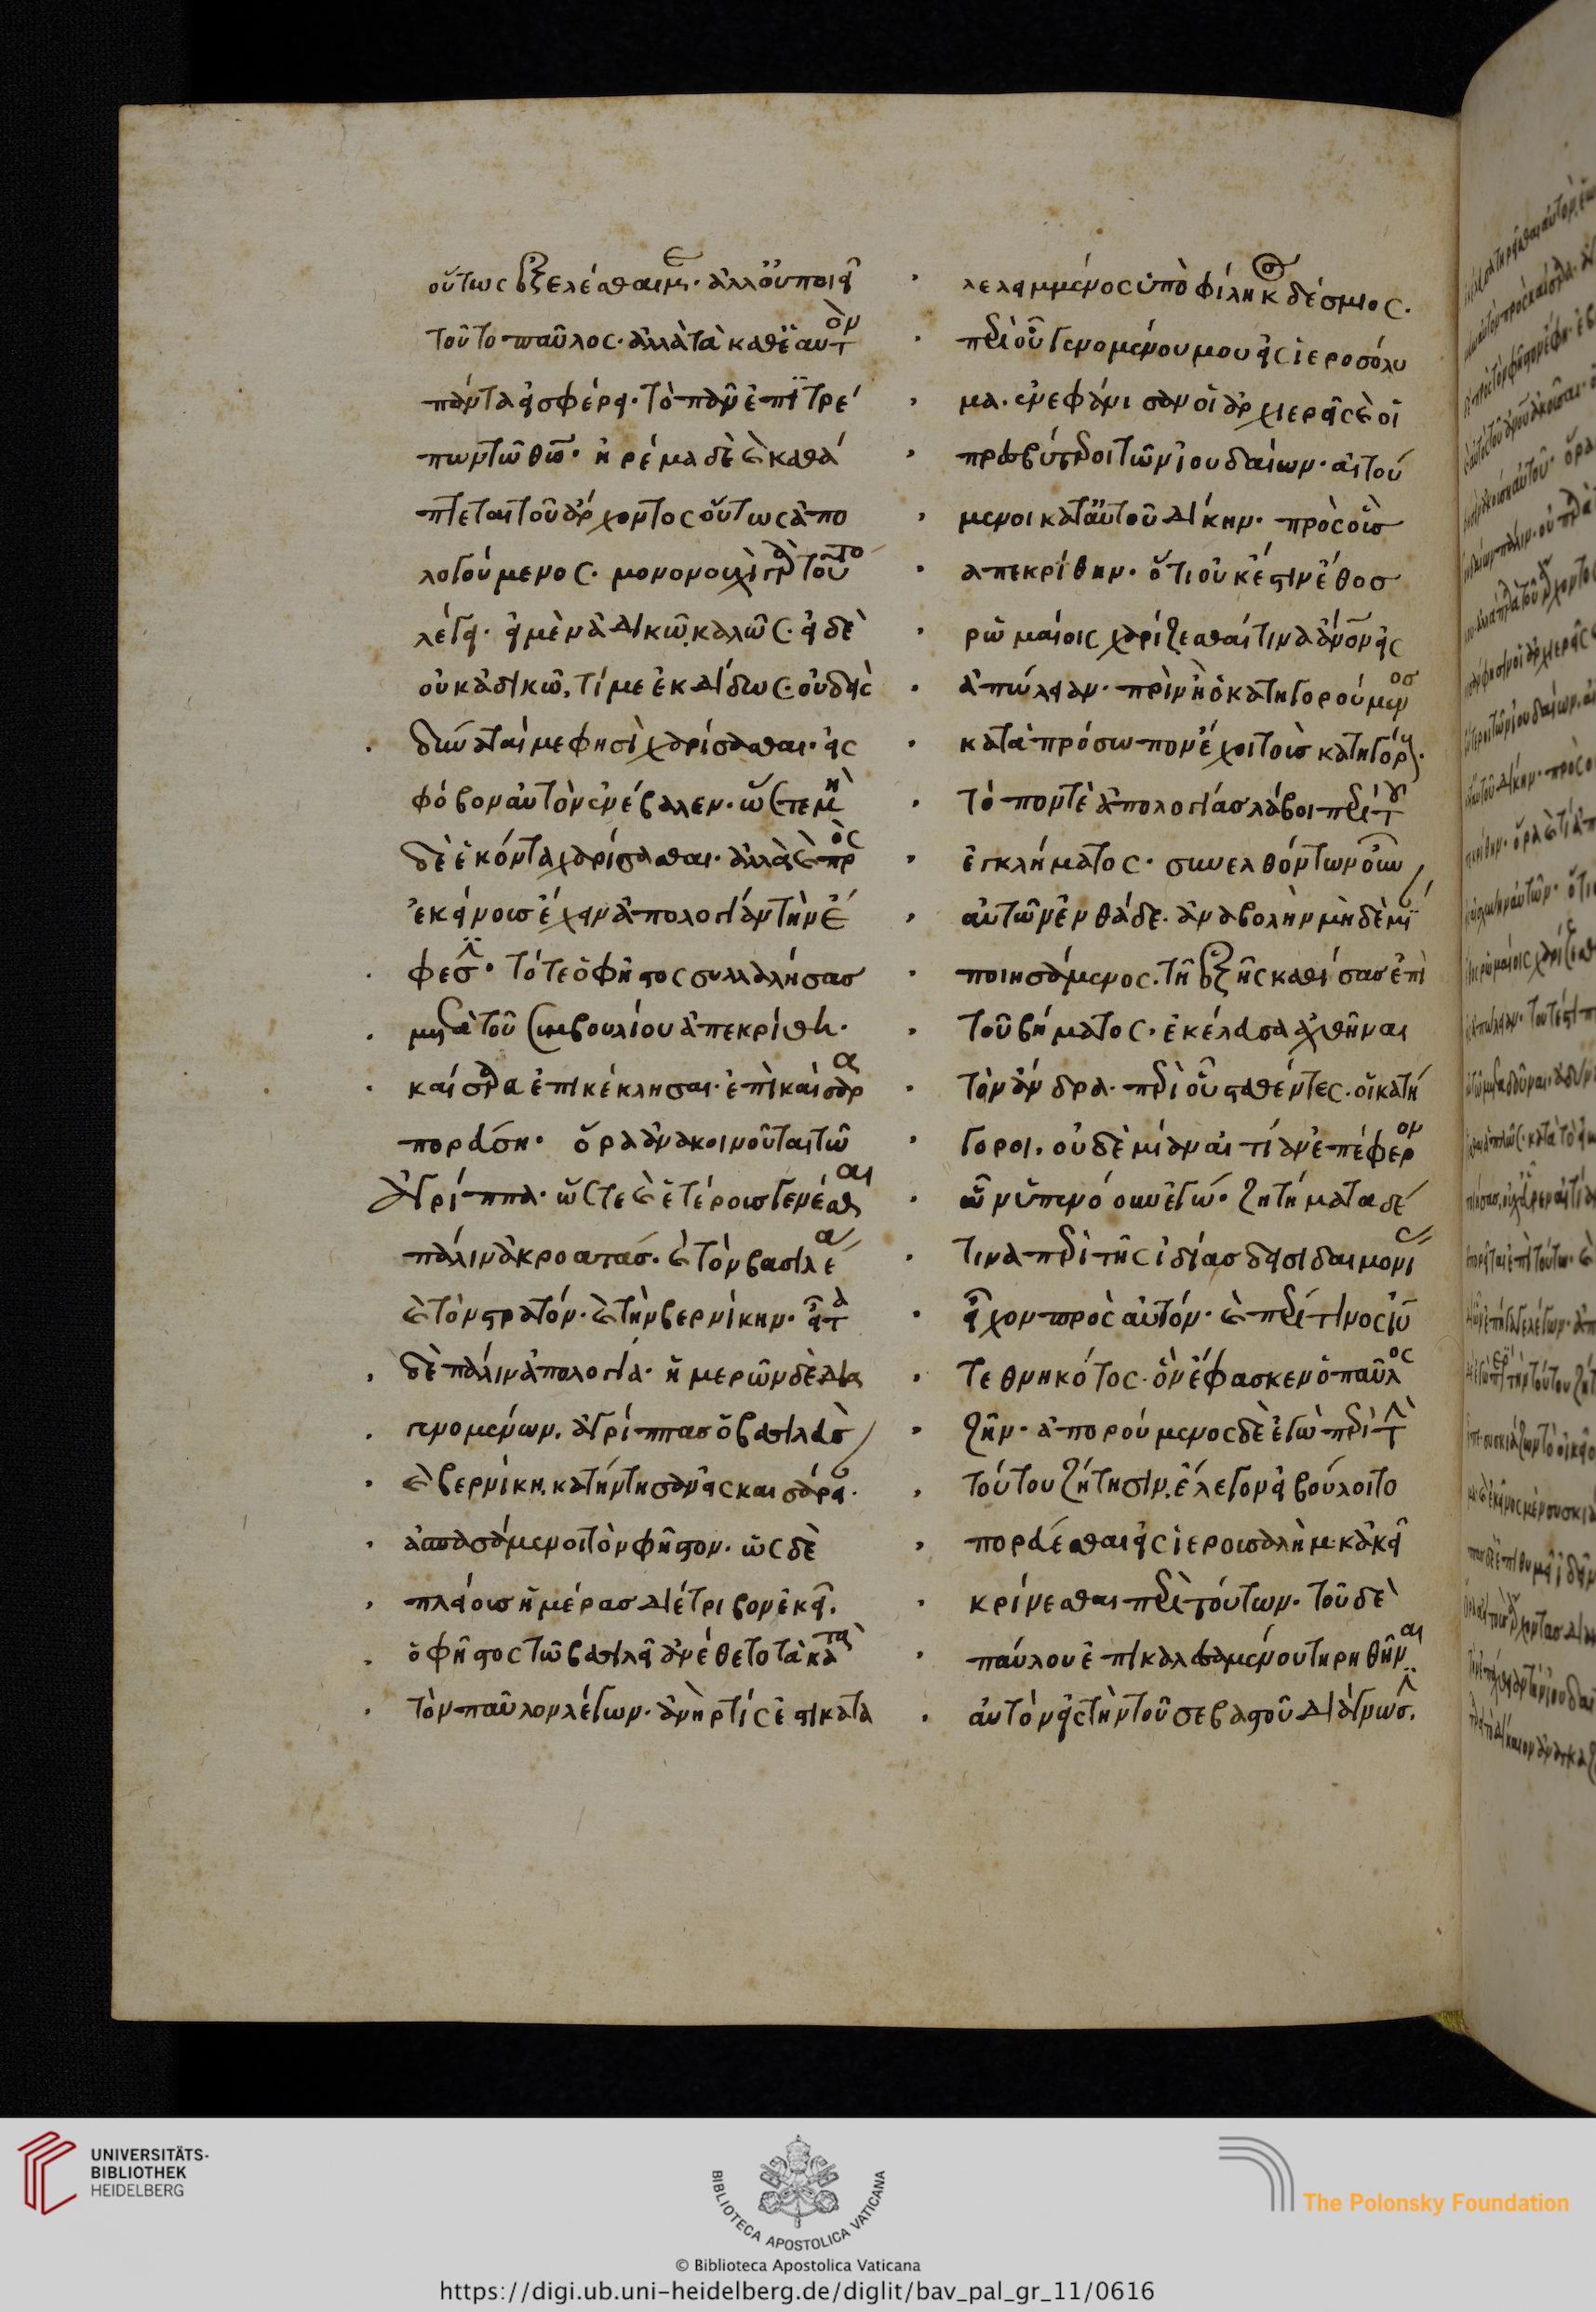 οὕτως ἐξελέσθαι με. ἀλλ' οὐ ποιεῖ
τοῦτο παῦλος. ἀλλὰ τὰ καθ' ἑαυτὸν
πάντα εἰσφέρει. τὸ πᾶν ἐπιτρέ
πων τῶ θεῶ. ἠρέμα δὲ καὶ καθά
πτεται τοῦ ἄρχοντος οὕτως ἀπο
λογούμενος. μονονουχὶ γὰρ τοῦτο
λέγει. εἰ μὲν ἀδικῶ, καλῶς. εἰ δὲ
οὐκ ἀδικῶ, τί με ἐκδίδως. οὐδεὶς
δύναταί με φησὶ χαρίσασθαι. εἰς
φόβον αὐτὸν ἐνέβαλεν. ὥστε μὴ
δὲ ἑκόντα χαρίσασθαι. ἀλλὰ καὶ πρὸς
ἐκείνοις ἔχειν ἀπολογίαν τὴν ἔ
φεσιν. τότε ὁ φῆστος συλλαλήσας
μετὰ τοῦ συμβουλίου ἀπεκρίθη.
καίσαρα ἐπικέκλησαι. ἐπὶ καίσαρα
πορεύση. ὅρα ἀνακοινοῦται τῶ
ἀγρίππα. ὥστε καὶ ἑτέροις γενέσθαι
πάλιν ἀκροατὰς. καὶ τὸν βασιλέα
καὶ τὸν στρατόν. καὶ τὴν βερνίκην. εἶτα
δὲ πάλιν ἀπολογία. ἡμερῶν δὲ δια
γενομένων. ἀγρίππας ὁ βασιλεὺς
καὶ βερνίκη. κατήντησαν εἰς καισάρει.
ἀσπασάμενοι τὸν φῆστον. ὡς δὲ
πλείους ἡμέρας διέτριβον ἐκεῖ.
ὁ φῆστος τῶ βασιλεῖ ἀνέθετο τὰ κατὰ
τὸν παῦλον λέγων. ἀνήρ τίς ἐστι κατα
λελειμμένος ὑπὸ φίληκος δέσμιος.
περὶ οὗ γενομένου μου εἰς ἱεροσόλυ
μα. ἐνεφάνισαν οἱ ἀρχιερεῖς καὶ οἱ
πρεσβύτεροι τῶν ἰουδαίων. αἰτού
μενοι κατ' αὐτοῦ δίκην. πρὸς οὓς
ἀπεκρίθην. ὅτι οὐκ ἔστιν ἔθος
ρωμαίοις χαρίζεσθαί τινα ἄνον εἰς
ἀπώλειαν. πρὶν ἢ ὁ κατηγορούμενος
κατὰ πρόσωπον ἔχοι τοὺς κατηγόρους.
τόπον τὲ ἀπολογίας λάβοι περὶ τοῦ
ἐγκλήματος. συνελθόντων οὖν
αὐτῶν ἐνθάδε. ἀναβολὴν μηδὲ μίαν
ποιησάμενος. τῆ ἑξῆς καθίσας ἐπὶ
τοῦ βήματος. ἐκέλευσα ἀχθῆναι
τὸν ἄνδρα. περὶ οὗ σταθέντες. οἱ κατή
γοροι. οὐδὲ μίαν αἰτίαν ἐπέφερον
ὧν ὑπενόουν ἐγώ. ζητήματα δέ
τινα περὶ τῆς ἰδίας δεισιδαιμονίας
εἶχον πρὸς αὐτόν. καὶ περί τινος ἰυ
τεθνηκότος. ὃν ἔφασκεν ὁ παῦλος
ζῆν. ἀπορούμενος δὲ ἐγὼ περὶ τὴν
τούτου ζήτησιν. ἔλεγον εἰ βούλοιτο
πορεύεσθαι εἰς ἱερουσαλὴμ. κἀκεῖ
κρίνεσθαι περὶ τούτων. τοῦ δὲ
παύλου ἐπικαλεσαμένου τηρηθῆναι
αὐτὸν εἰς τὴν τοῦ σεβαστοῦ διάγνωσιν.
UNIVERSITÄTS-
BIBLIOTHEK
HEIDELBERG
BIBLIOTECA APOSTOLICA VATICANA
The Polonsky Foundation
© Biblioteca Apostolica Vaticana
https://digi.ub.uni-heidelberg.de/diglit/bav_pal_gr_11/0616